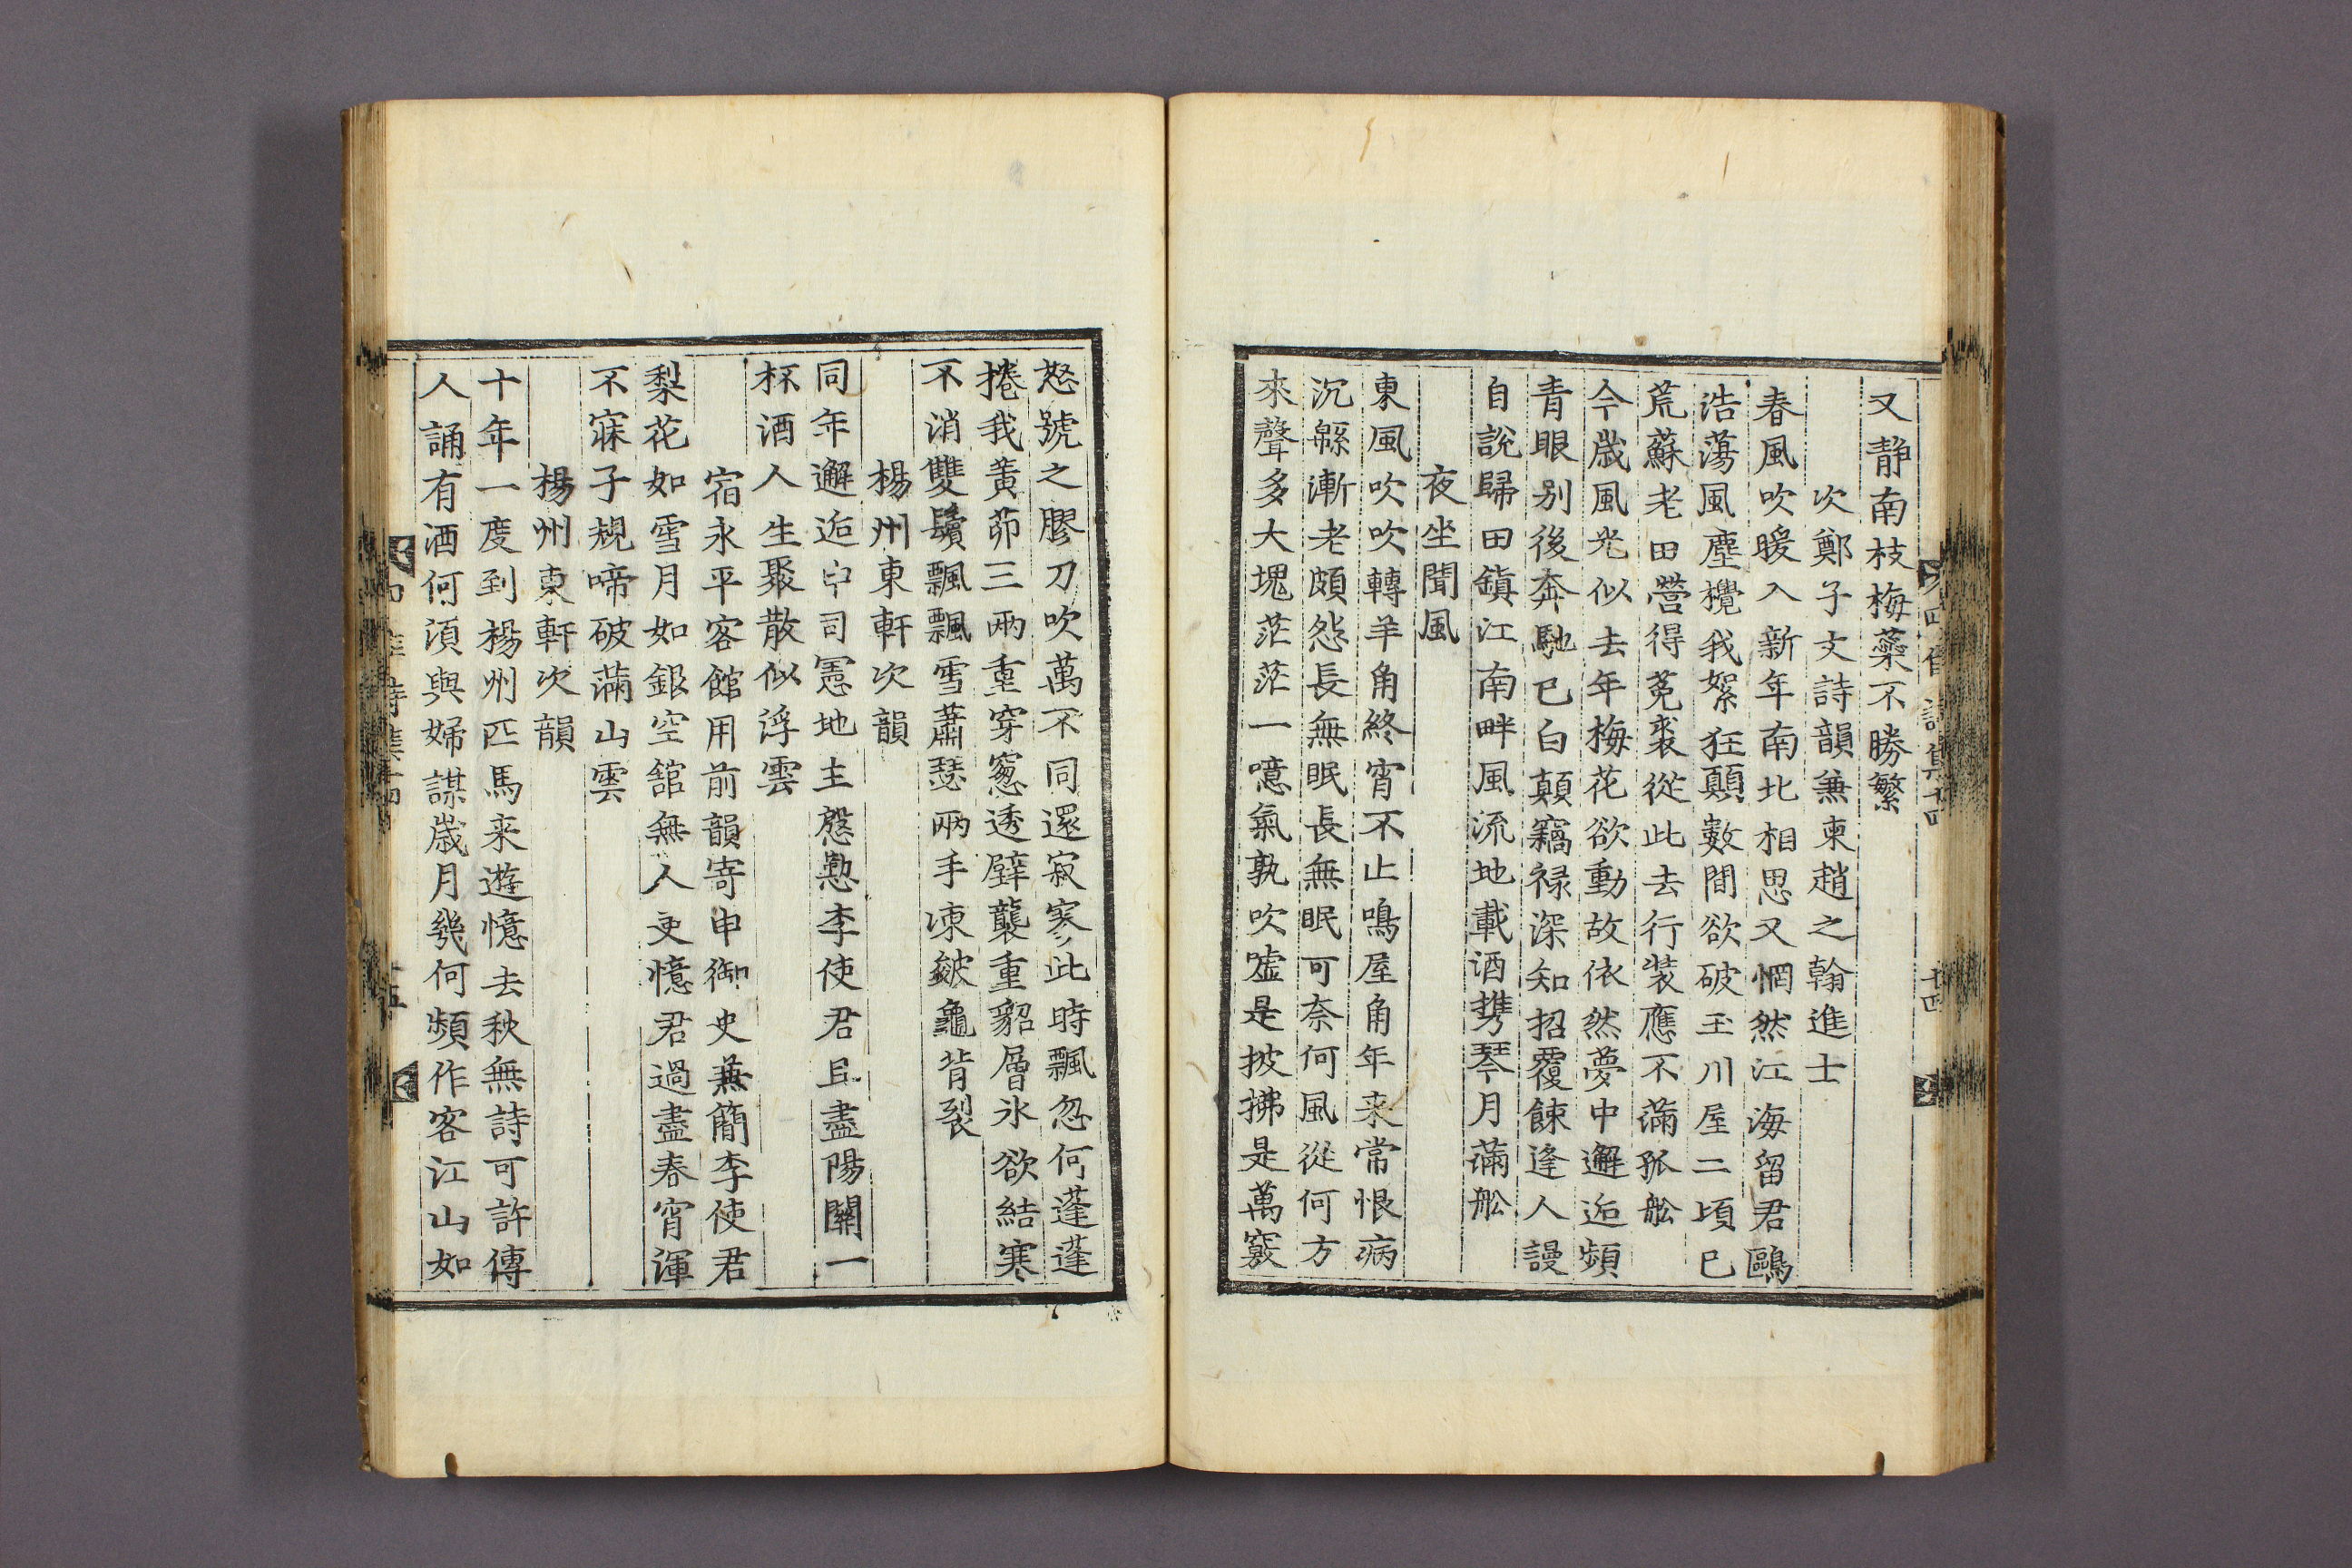 又静南枝梅蘂不勝繁
次鄭子文詩韻兼柬趙之翰進士
春風吹暖入新年南北相思又惘然江海留君鷗
浩蕩風塵攪我絮狂顚數間欲破玉川屋二頃已
荒蘇老田營得菟裘從此去行裝應不滿孤舩
今歲風光似去年梅花欲動故依然夢中邂逅頻
青眼别後奔馳已白顚竊祿深知招覆餗逢人謾
自說歸田鎭江南畔風流地載酒携琴月滿舩
夜坐聞風
東風吹吹轉羊角終宵不止鳴屋角年来常恨病
沉緜漸老頗怨長無眠長無眠可奈何風從何方
來聲多大塊茫茫一噫氣孰吹噓是披拂是萬竅
怒號之膠刀吹萬不同還寂寥此時飄忽何蓬蓬
捲我黃茆三兩重穿窻透壁襲重貂層氷欲結寒
不消雙鬢飄飄雪蕭瑟兩手凍皴龜背裂
楊州東軒次韻
同年邂逅中司憲地主慇懃李使君且盡陽關一
杯酒人生聚散似浮雲
宿永平客館用前韻寄申御史兼簡李使君
梨花如雪月如銀空舘無人更憶君過盡春宵渾
不寐子規啼破滿山雲
楊州東軒次韻
十年一度到楊州匹馬来遊憶去秋無詩可許傳
人誦有酒何湏與婦謀歲月幾何頻作客江山如